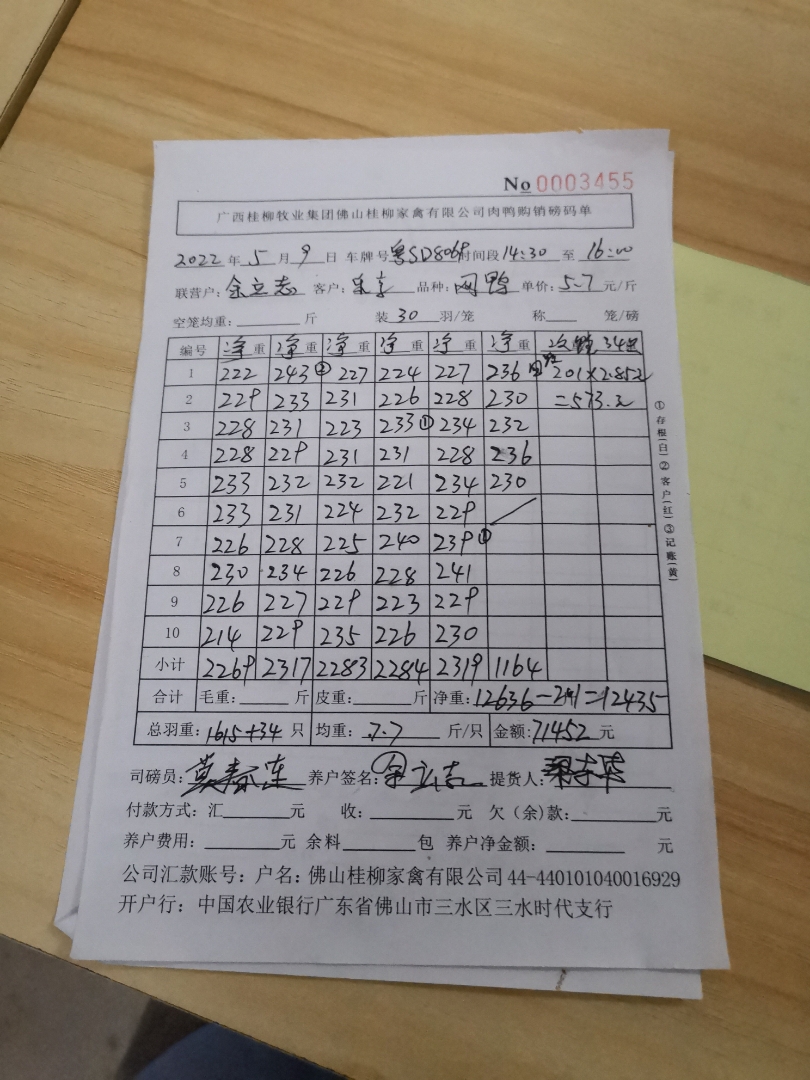 No 0003455
广西桂柳牧业集团佛山桂柳家禽有限公司肉鸭购销磅码单
2022 年 5 月 9 日 车牌号 粤SD8069 时间段 14:30 至 16:00
联营户: 余立志 客户: 品种: 网鸭 单价: 5.7 元/斤
空笼均重: 斤 装 30 羽/笼 称 笼/磅
编号 净重 净重 净重 净重 净重 净重 次鸭 34只
1 222 243 ② 227 224 227 236 201×2.852
2 229 233 231 226 228 230 =573.2
3 228 231 223 233 ① 234 232
4 228 229 231 231 228 236
5 233 232 232 221 234 230
6 233 231 224 232 229
7 226 228 225 240 239 ①
8 230 234 226 228 241
9 226 227 229 223 229
10 214 229 235 226 230
小计 2269 2317 2283 2284 2319 1164
合计 毛重: 斤 皮重: 斤 净重: 12636-201=12435
总羽重: 1615+34 只 均重: 7.7 斤/只 金额: 71452 元
司磅员: 养户签名: 余立志 提货人:
付款方式: 汇 元 收: 元 欠(余)款: 元
养户费用: 元 余料 包 养户净金额: 元
公司汇款账号: 户名: 佛山桂柳家禽有限公司 44-440101040016929
开户行: 中国农业银行广东省佛山市三水区三水时代支行
①存根(白)②客户(红)③记账(黄)